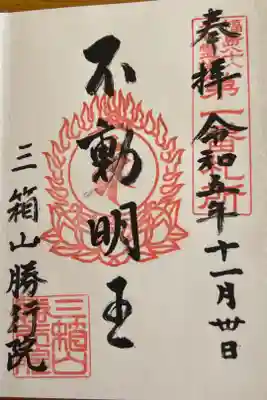 奉拝
令和五年十一月卅日
不動明王
三箱山勝行院